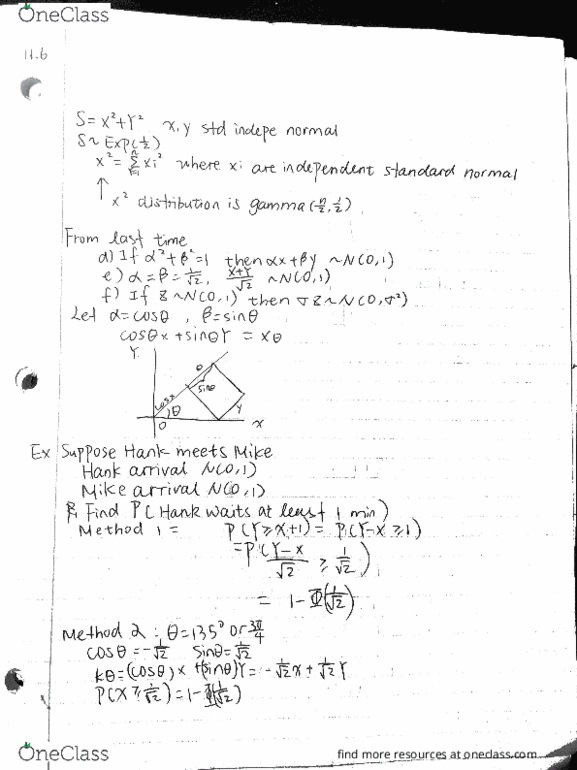 OneClass
11.6
S = X² + Y²   X, Y std indepe normal
S ~ Exp(½)
X² = Σ Xi² where Xi are independent standard normal
↑ X² distribution is gamma (n/2, ½)
From last time
d) If α² + β² = 1 then αx + βy ~ N(0,1)
e) α = β = 1/√2, (X+Y)/√2 ~ N(0,1)
f) If Z ~ N(0,1) then σZ ~ N(0,σ²)
Let α = cosθ, β = sinθ
cosθx + sinθY = Xθ
Y
θ
sinθ
cosx
θ
Y
0
X
Ex Suppose Hank meets Mike
Hank arrival N(0,1)
Mike arrival N(0,1)
Find P(Hank waits at least 1 min)
Method 1 = P(Y ≥ X+1) = P(Y-X ≥ 1)
= P((Y-X)/√2 ≥ 1/√2)
= 1 - Φ(1/√2)
Method 2: θ = 135° or 3π/4
cosθ = -1/√2   sinθ = 1/√2
Xθ = (cosθ)X + (sinθ)Y = -1/√2 X + 1/√2 Y
P(X ≥ 1/√2) = 1 - Φ(1/√2)
OneClass
find more resources at oneclass.com